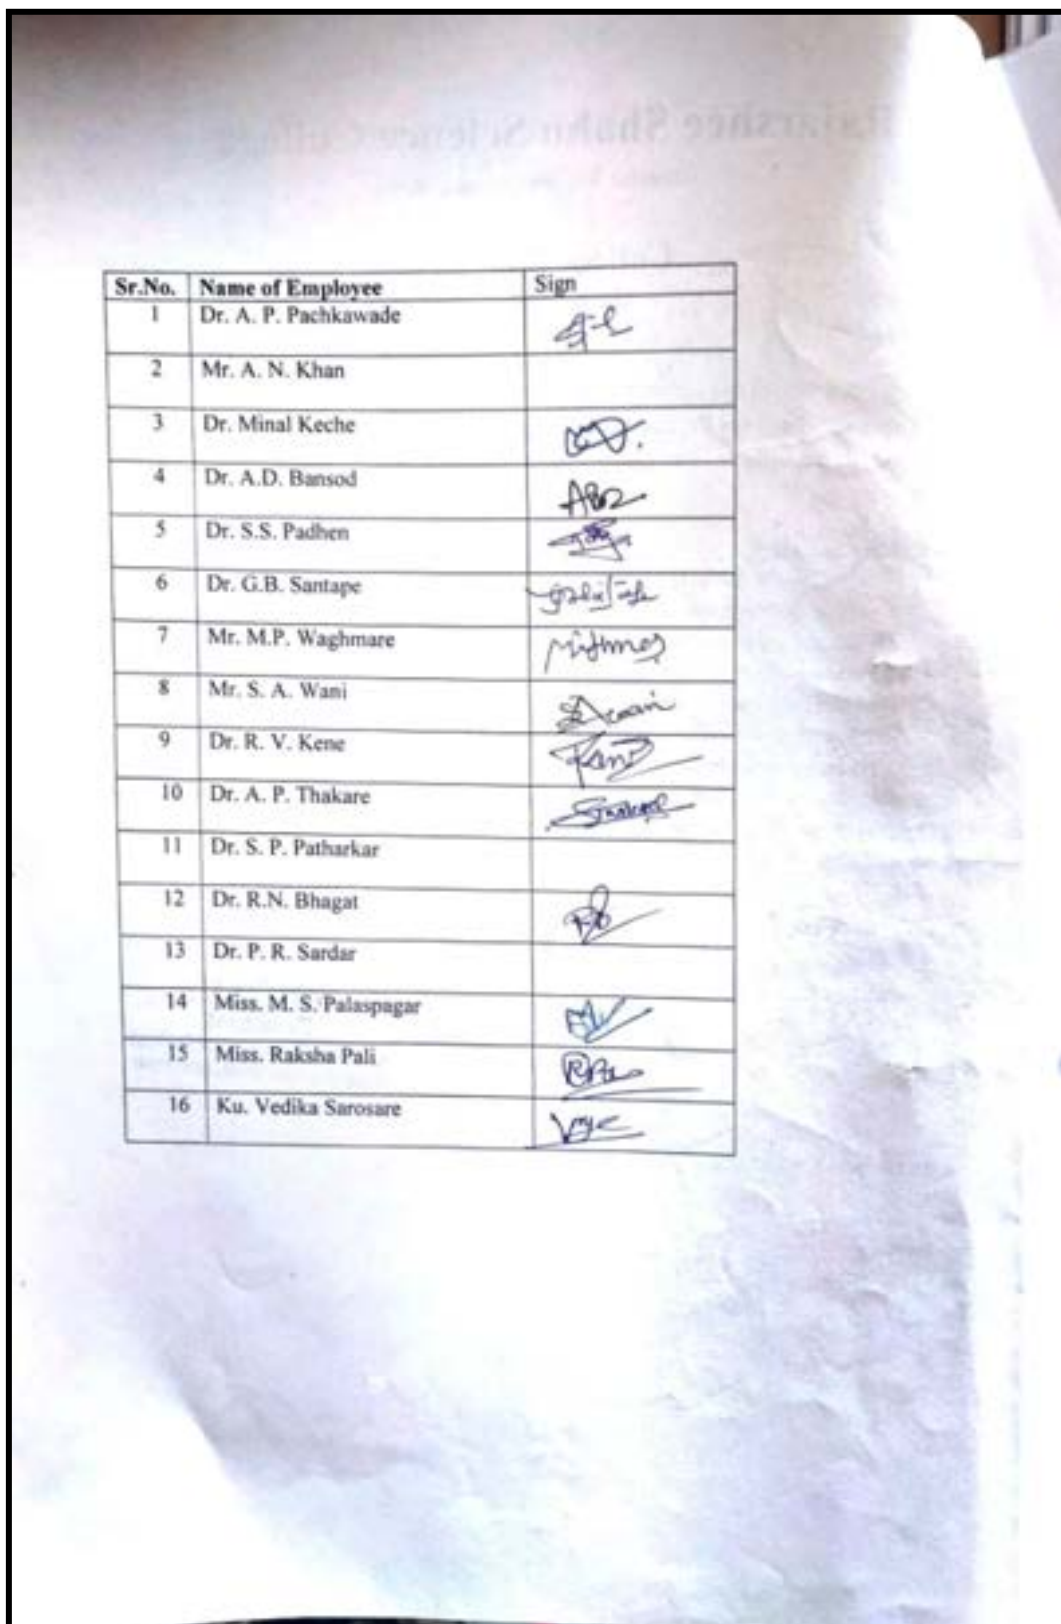 Rajarshee Shahu Science College
Sr.No. Name of Employee Sign
1 Dr. A. P. Pachkawade
2 Mr. A. N. Khan
3 Dr. Minal Keche
4 Dr. A.D. Bansod
5 Dr. S.S. Padhen
6 Dr. G.B. Santape
7 Mr. M.P. Waghmare
8 Mr. S. A. Wani
9 Dr. R. V. Kene
10 Dr. A. P. Thakare
11 Dr. S. P. Patharkar
12 Dr. R.N. Bhagat
13 Dr. P. R. Sardar
14 Miss. M. S. Palaspagar
15 Miss. Raksha Pali
16 Ku. Vedika Sarosare